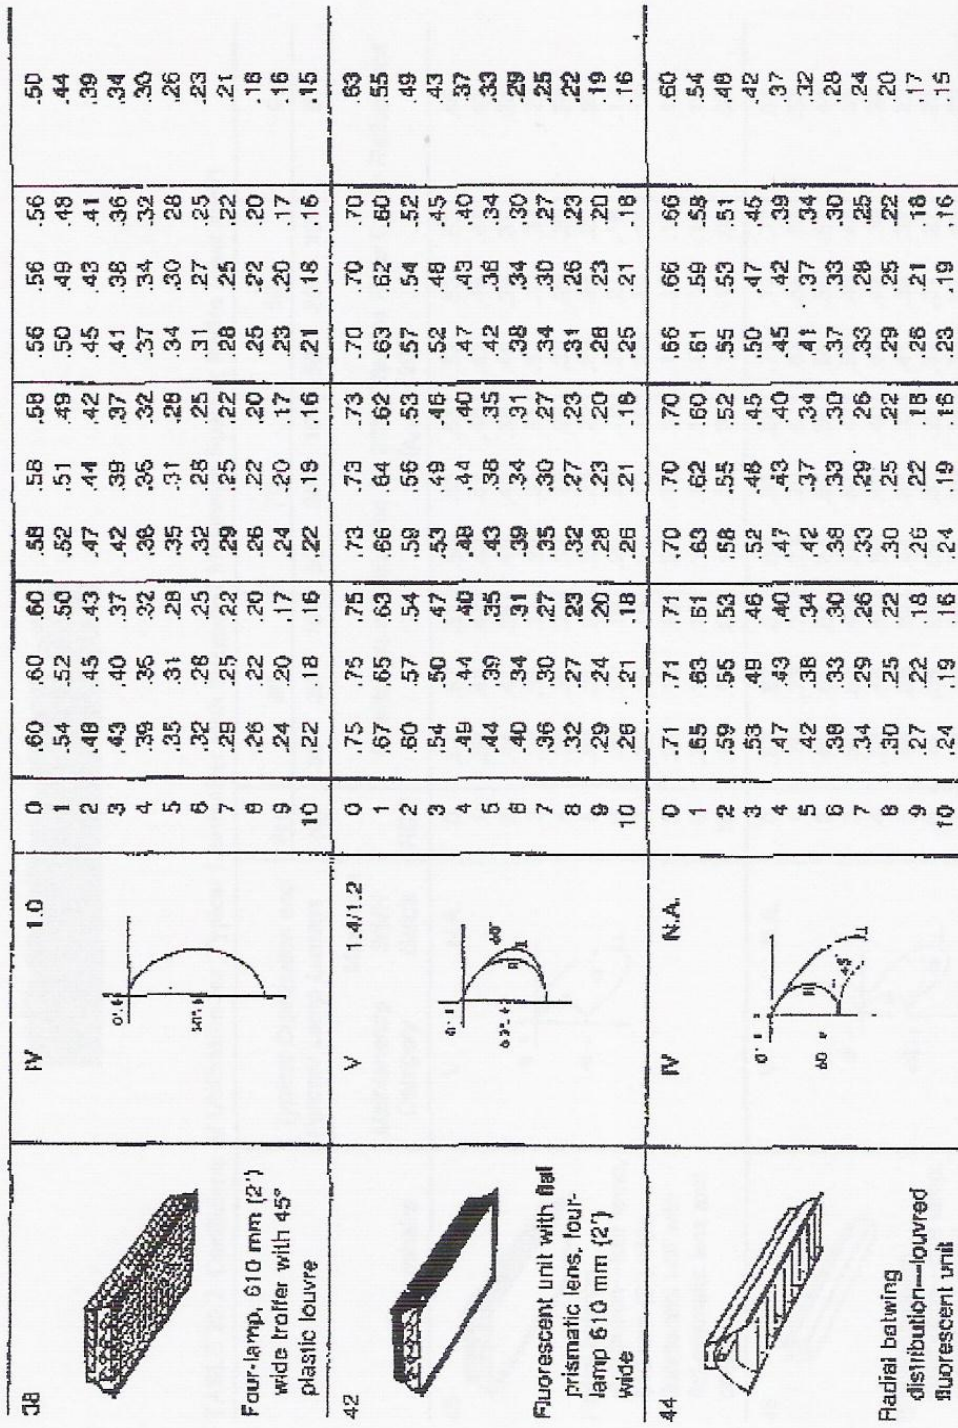 38
Four-lamp, 610 mm (2')
wide troffer with 45°
plastic louvre
IV 1.0
0 .60 .60 .60 .58 .58 .58 .56 .56 .56 .50
1 .54 .52 .50 .52 .51 .49 .50 .49 .48 .44
2 .48 .45 .43 .47 .44 .42 .45 .43 .41 .39
3 .43 .40 .37 .42 .39 .37 .41 .38 .36 .34
4 .39 .35 .32 .38 .35 .32 .37 .34 .32 .30
5 .35 .31 .28 .35 .31 .28 .34 .30 .28 .26
6 .32 .28 .25 .32 .28 .25 .31 .27 .25 .23
7 .29 .25 .22 .29 .25 .22 .28 .25 .22 .21
8 .26 .22 .20 .26 .22 .20 .25 .22 .20 .18
9 .24 .20 .17 .24 .20 .17 .23 .20 .17 .16
10 .22 .18 .16 .22 .18 .16 .21 .18 .16 .15
42
Fluorescent unit with flat
prismatic lens, four-
lamp 610 mm (2')
wide
V 1.4/1.2
60°
0 .75 .75 .75 .73 .73 .73 .70 .70 .70 .63
1 .67 .65 .63 .66 .64 .62 .63 .62 .60 .55
2 .60 .57 .54 .59 .56 .53 .57 .54 .52 .49
3 .54 .50 .47 .53 .49 .46 .52 .48 .45 .43
4 .49 .44 .40 .48 .44 .40 .47 .43 .40 .37
5 .44 .39 .35 .43 .38 .35 .42 .38 .34 .33
6 .40 .34 .31 .39 .34 .31 .38 .34 .30 .29
7 .36 .30 .27 .35 .30 .27 .34 .30 .27 .25
8 .32 .27 .23 .32 .27 .23 .31 .26 .23 .22
9 .29 .24 .20 .28 .23 .20 .28 .23 .20 .19
10 .26 .21 .18 .26 .21 .18 .25 .21 .18 .16
44
Radial batwing
distribution—louvred
fluorescent unit
IV N.A.
0 .71 .71 .71 .70 .70 .70 .66 .66 .66 .60
1 .65 .63 .61 .63 .62 .60 .61 .59 .58 .54
2 .59 .55 .53 .58 .55 .52 .55 .53 .51 .48
3 .53 .49 .46 .52 .48 .45 .50 .47 .45 .42
4 .47 .43 .40 .47 .43 .40 .45 .42 .39 .37
5 .42 .38 .34 .42 .37 .34 .41 .37 .34 .32
6 .38 .33 .30 .38 .33 .30 .37 .33 .30 .28
7 .34 .29 .26 .33 .29 .26 .33 .28 .25 .24
8 .30 .25 .22 .30 .25 .22 .29 .25 .22 .20
9 .27 .22 .18 .26 .22 .18 .26 .21 .18 .17
10 .24 .19 .16 .24 .19 .16 .23 .19 .16 .15